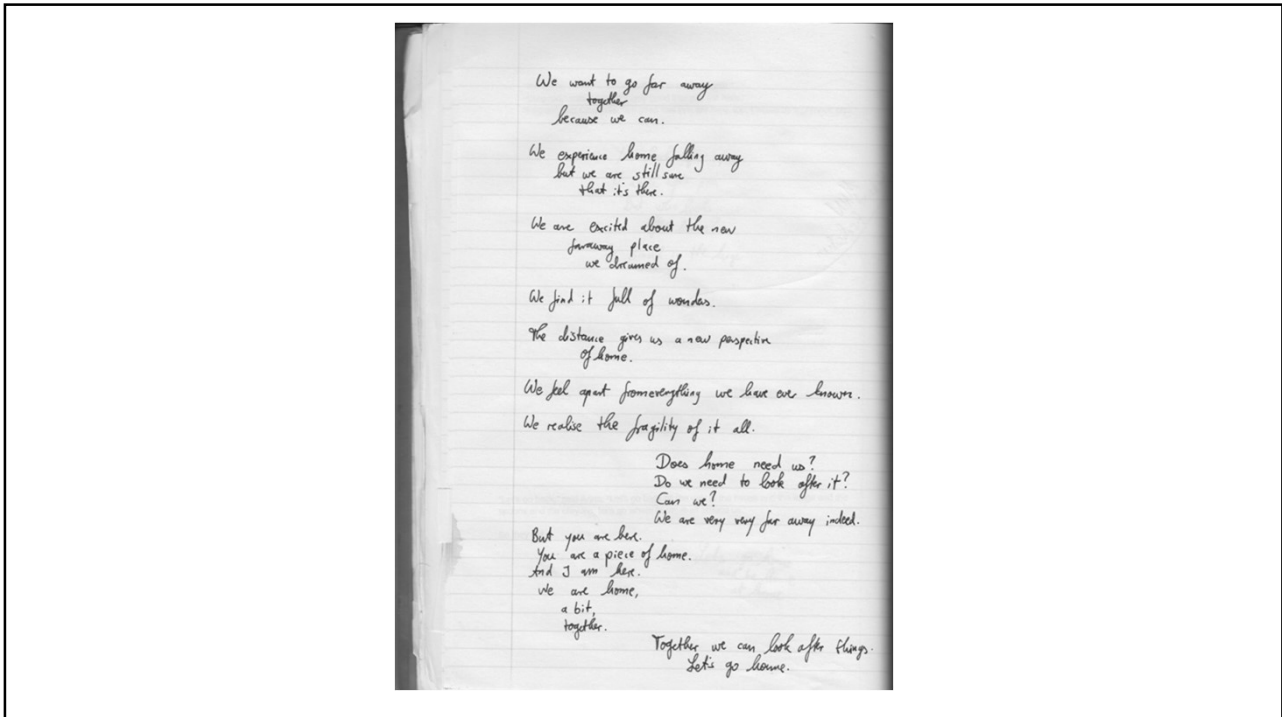 We want to go far away
together
because we can.
We experience home falling away
but we are still sure
that it's there.
We are excited about the new
faraway place
we dreamed of.
We find it full of wonders.
The distance gives us a new perspective
of home.
We feel apart from everything we have ever known.
We realise the fragility of it all.
Does home need us?
Do we need to look after it?
Can we?
We are very very far away indeed.
But you are here.
You are a piece of home.
And I am here.
We are home,
a bit,
together.
Together we can look after things.
Let's go home.